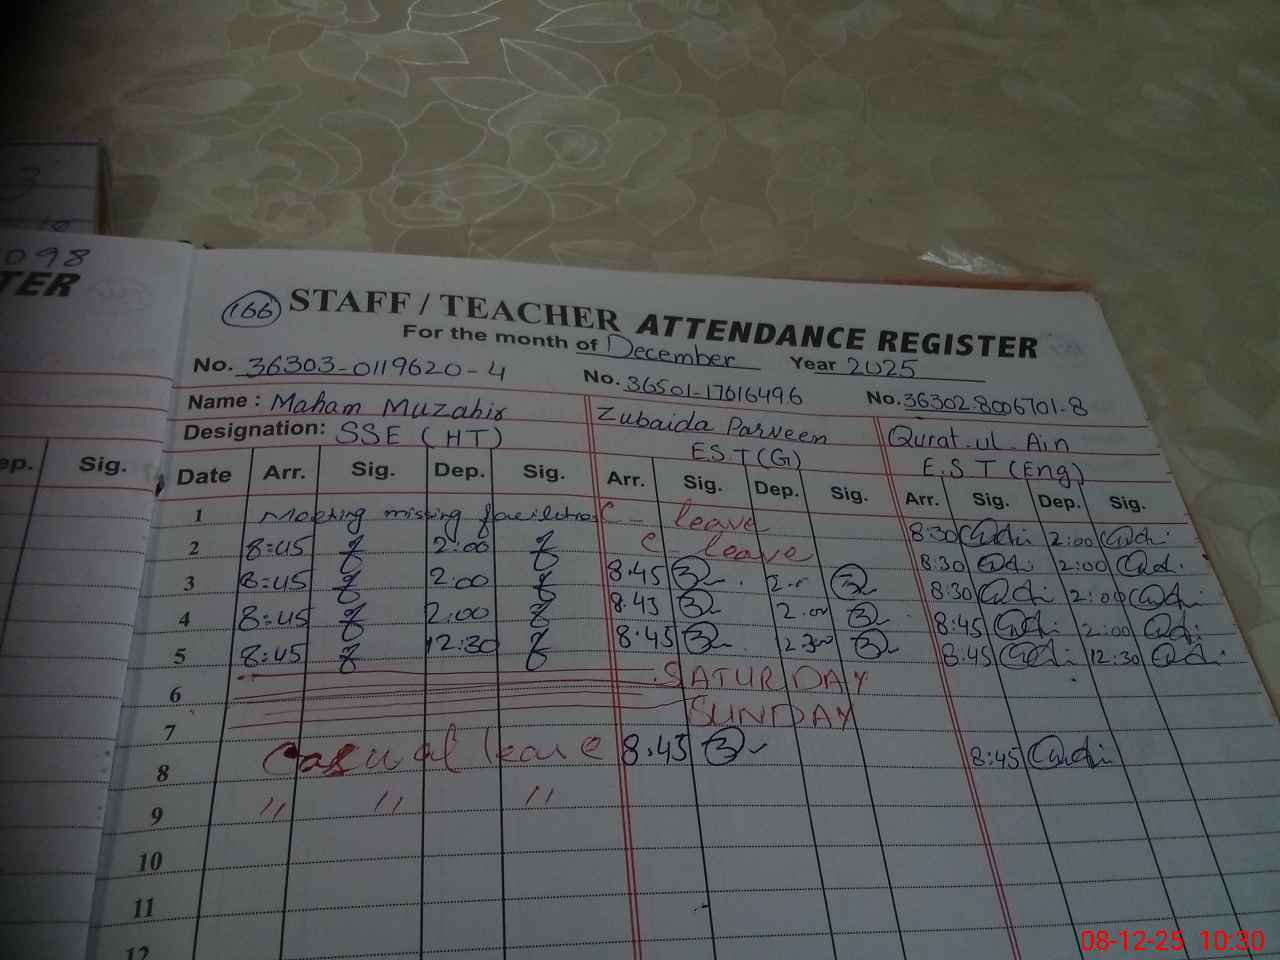 3
098
TER
ep. Sig.
166 STAFF / TEACHER ATTENDANCE REGISTER
For the month of December Year 2025
No. 36303-0119620-4 No. 36501-17616496 No. 36302-8006701-8
Name: Maham Muzahir Zubaida Parveen Qurat-ul-Ain
Designation: SSE (HT) E.S.T(G) E.S.T (Eng)
Date Arr. Sig. Dep. Sig. Arr. Sig. Dep. Sig. Arr. Sig. Dep. Sig.
1 Meeting missing C - leave 8:30 2:00
2 8:45 2:00 C - leave 8:30 2:00
3 8:45 2:00 8.45 8:30 2:00
4 8:45 2:00 8.45 2.00 8:45 2:00
5 8:45 12:30 8.45 8:45 12:30
6 SATURDAY
7 SUNDAY
8 Casual leave 8.45 8:45
9 " " "
10
11
12
08-12-25 10:30